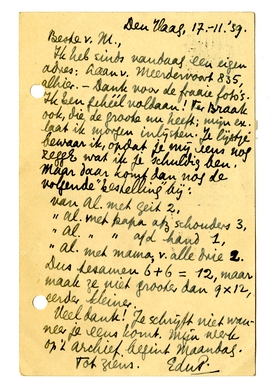 Den Haag, 17.-11.'39.
Beste v. M.,
Ik heb sinds vandaag een eigen
adres: Laan v. Meerdervoort 835,
alhier. - Dank voor de fraaie foto's.
Ik ben geheel voldaan! Ter Braak
ook, die de groote nu heeft; mijn ex.
laat ik morgen inlijsten. Je lijstje
bewaar ik, opdat je mij eens nog
zegge wat ik je schuldig ben.
Maar daar komt dan nog de
volgende "bestelling" bij:
van Al. met geit 2,
" Al. met papa op schouders 3,
" Al. " " a/d hand 1,
" Al. met mama, v. alle drie 2.
Dus tesamen 6+6 = 12, maar
maak ze niet grooter dan 9 x 12,
eerder kleiner.
Veel dank! Je schrijft niet wan-
neer je eens komt. Mijn werk
op 't archief begint Maandag.
Tot ziens.